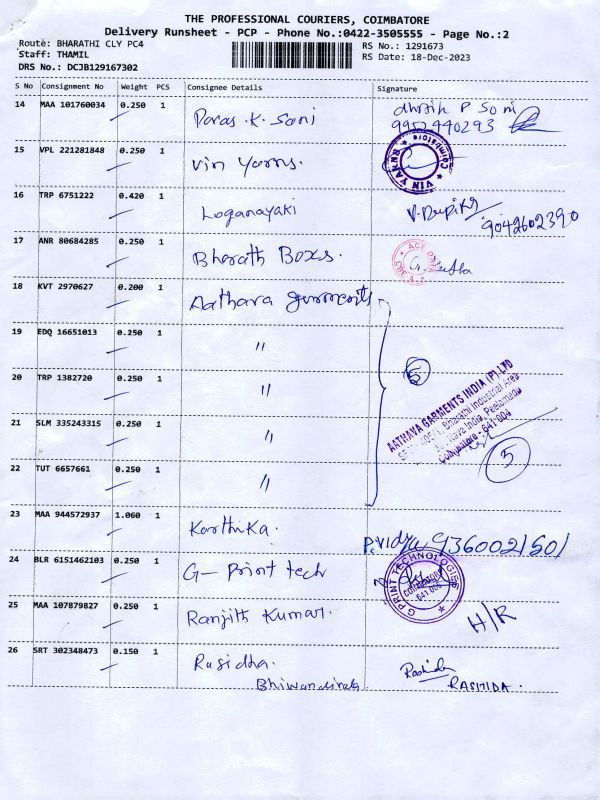 THE PROFESSIONAL COURIERS, COIMBATORE
Delivery Runsheet - PCP - Phone No.:0422-3505555 - Page No.:2
Route: BHARATHI CLY PC4
Staff: THAMIL
DRS No.: DCJB129167302
RS No.: 1291673
RS Date: 18-Dec-2023
S No Consignment No Weight PCS Consignee Details Signature
14 MAA 101760034 0.250 1 Paras .K. Soni
9952440293
15 VPL 221281848 0.250 1 Vin Yarns.
VIN YARNS
Coimbatore
16 TRP 6751222 0.420 1 Loganayaki
9042602390
17 ANR 80684285 0.250 1 Bharath Boxs.
18 KVT 2970627 0.200 1 Aathava garments
19 EDQ 16651013 0.250 1 "
20 TRP 1382720 0.250 1 "
5
21 SLM 335243315 0.250 1 "
AATHAVA GARMENTS INDIA (P) LTD
Bharathi Industrial Area
Nava India, Peelamedu
Coimbatore - 641 004
5
22 TUT 6657661 0.250 1 "
23 MAA 944572937 1.060 1 Karthika.
P.Vidya 9360021501
24 BLR 6151462103 0.250 1 G- Print tech
G PRINT TECHNOLOGIES
COIMBATORE
641 006
25 MAA 107879827 0.250 1 Ranjith Kumar.
H/R
26 SRT 302348473 0.150 1 Rasidha.
Rashida
RASHIDA.